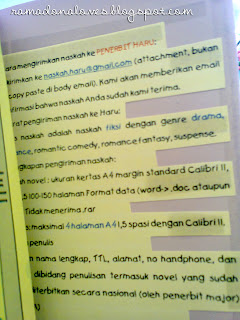 ramadonaloves.blogspot.com
ara mengirimkan naskah ke PENERBIT HARU:
kirimkan ke naskah.haru@gmail.com (attachment, bukan
copy paste di body email). Kami akan memberikan email
nfirmasi bahwa naskah Anda sudah kami terima.
rat pengiriman naskah ke Haru:
s naskah adalah naskah fiksi dengan genre drama,
ance, romantic comedy, romance fantasy, suspense.
ngkapan pengiriman naskah:
ah novel : ukuran kertas A4 margin standard Calibri 11,
5 100-150 halaman Format data (word-> .doc ataupun
Tidak menerima .rar
: maksimal 4 halaman A4 1,5 spasi dengan Calibri 11.
penulis
n nama lengkap, TTL, alamat, no handphone, dan
dibidang penulisan termasuk novel yang sudah
diterbitkan secara nasional (oleh penerbit major)